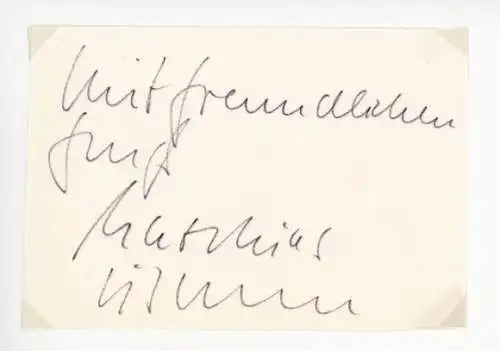 Mit freundlichen
Gruß
Matthias